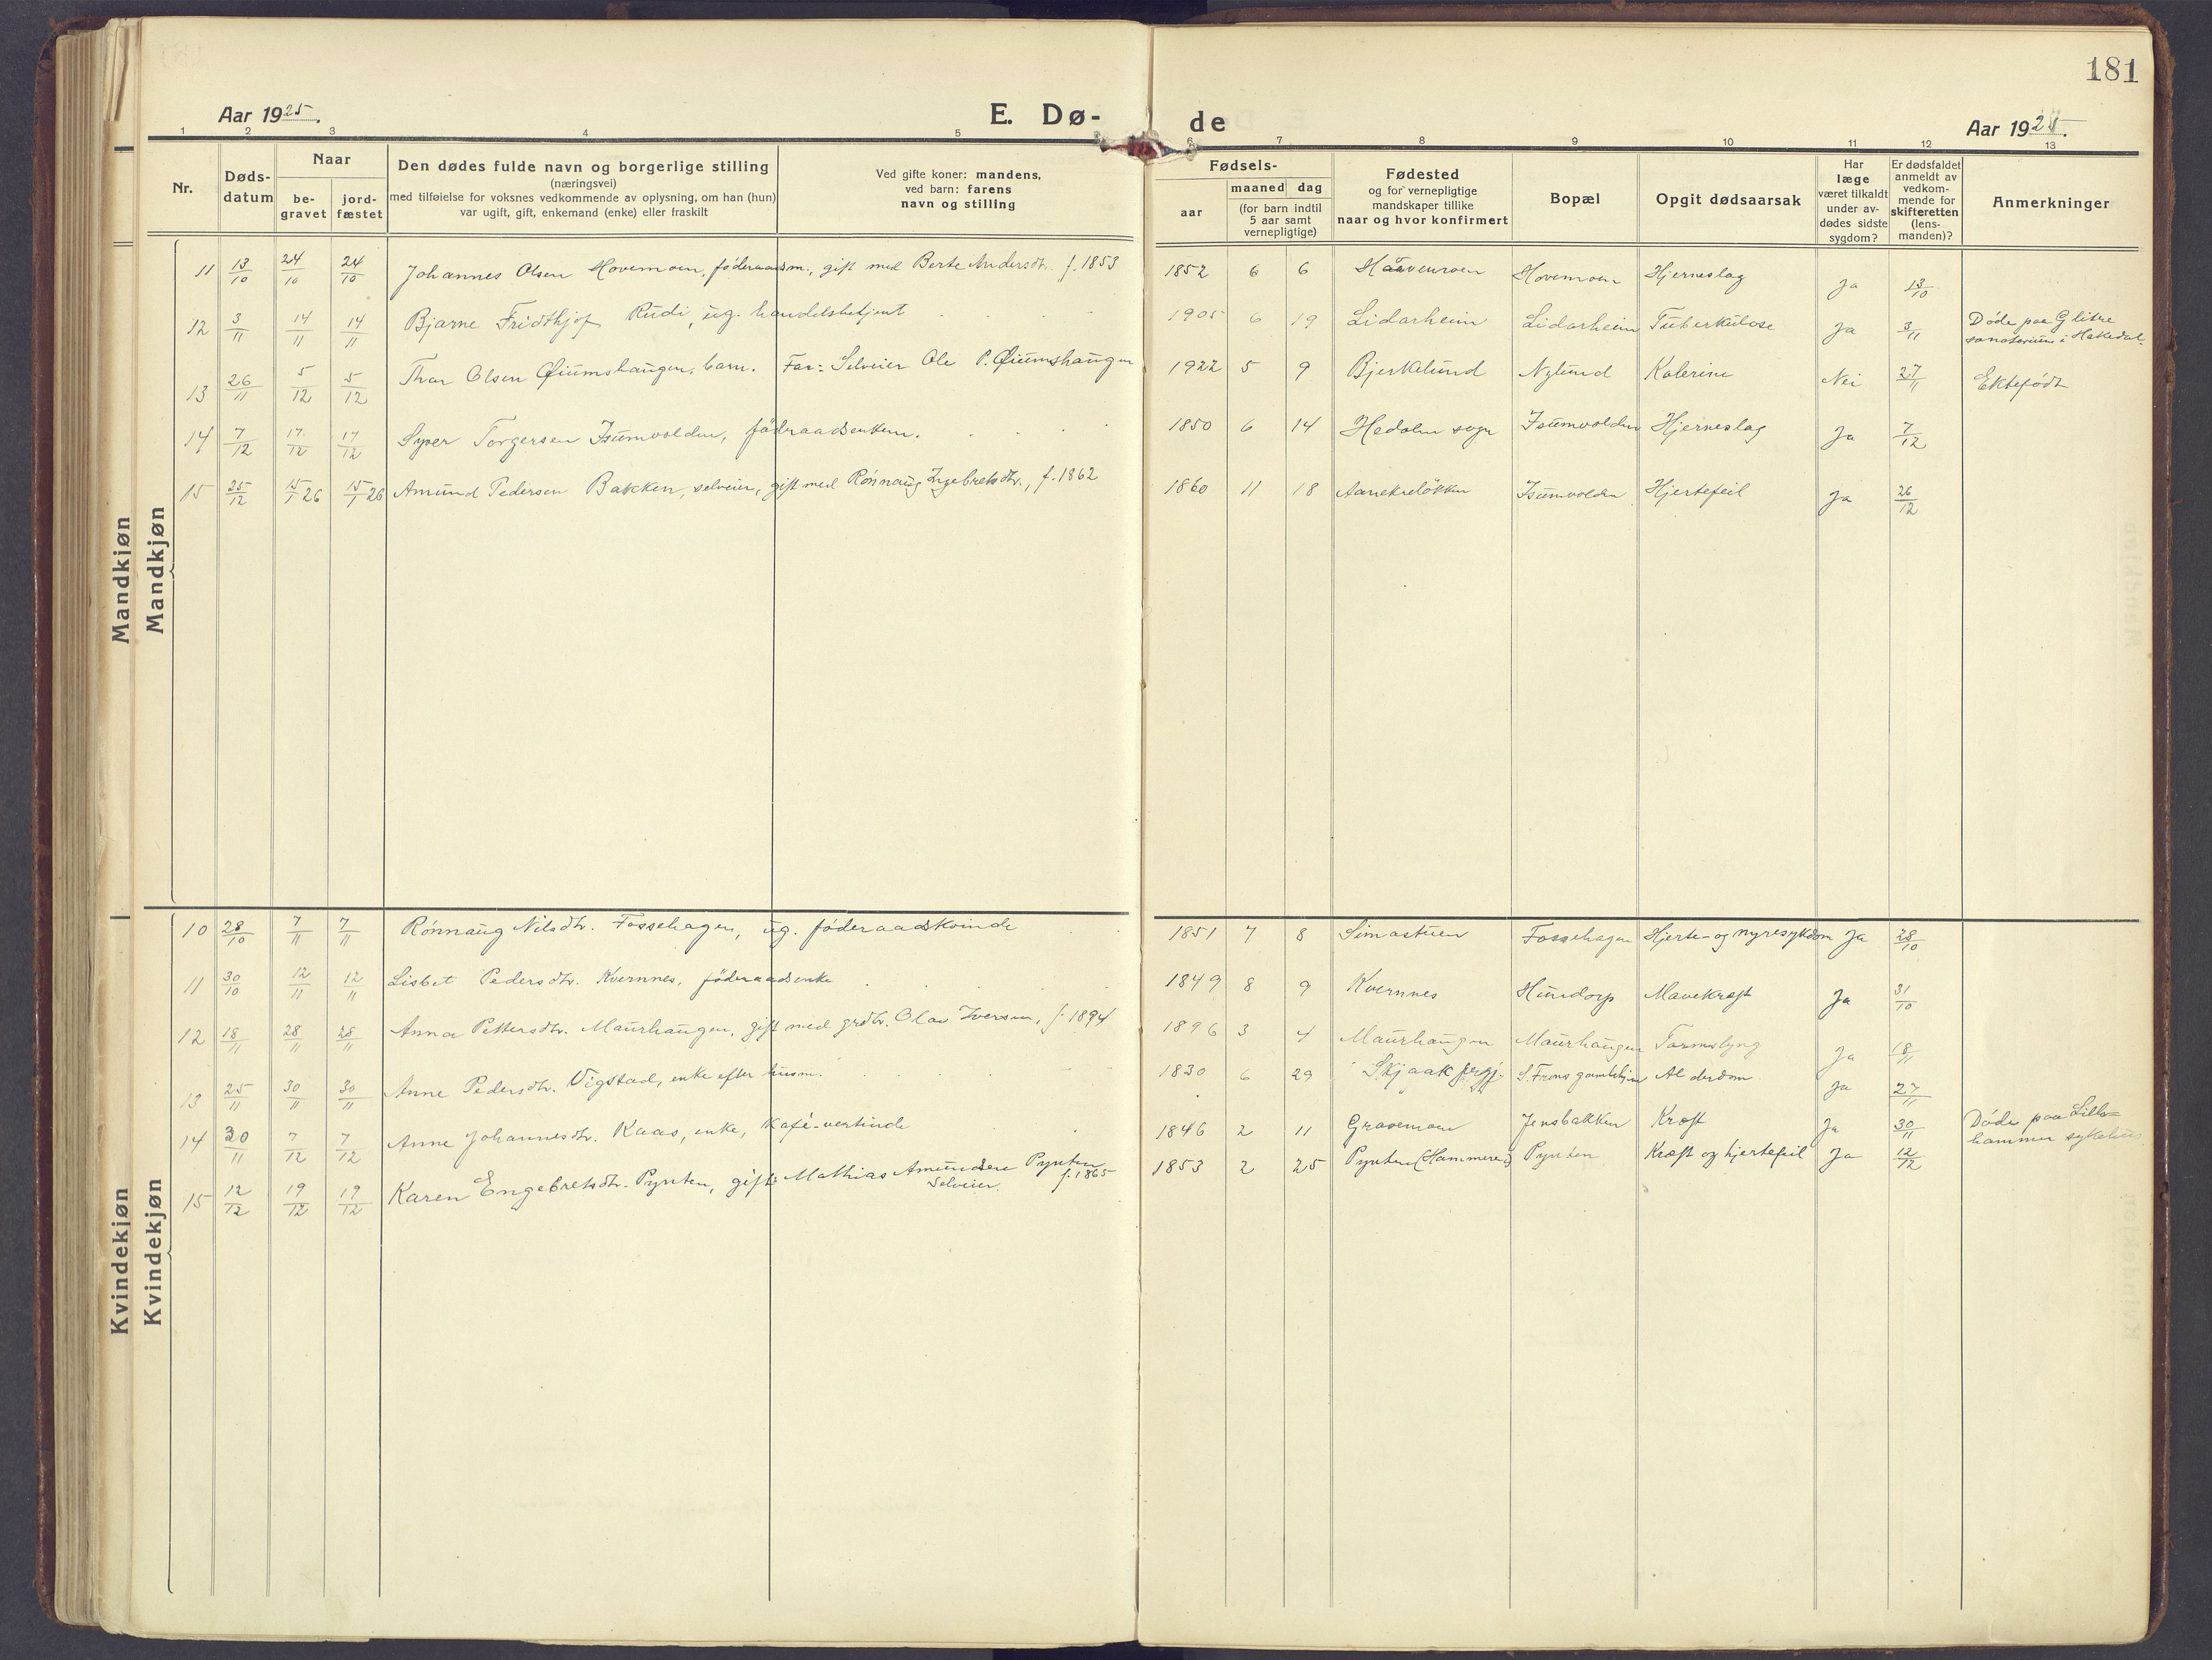 181
Aar 1925.
E. Dø-
de
Aar 1925.
1 2 3 4 5 6 7 8 9 10 11 12 13
Nr.
Døds-
datum
Naar
be-
gravet
jord-
fæstet
Den dødes fulde navn og borgerlige stilling
(næringsvei)
med tilføielse for voksnes vedkommende av oplysning, om han (hun)
var ugift, gift, enkemand (enke) eller fraskilt
Ved gifte koner: mandens,
ved barn: farens
navn og stilling
Fødsels-
aar
maaned dag
(for barn indtil
5 aar samt
vernepligtige)
Fødested
og for vernepligtige
mandskaper tillike
naar og hvor konfirmert
Bopæl
Opgit dødsaarsak
Har
læge
været tilkaldt
under av-
dødes sidste
sygdom?
Er dødsfaldet
anmeldt av
vedkom-
mende for
skifteretten
(lens-
manden)?
Anmerkninger
Mandkjøn
Mandkjøn
11 13/10 24/10 24/10 Johannes Olsen Hovemoen, föderaadsm., gift med Berte Andersdtr. f. 1853 1852 6 6 Hovemoen Hjerneslag Ja 13/10
12 3/11 14/11 14/11 Bjarne Fridthjof Rudi, ug. handelsbetjent 1905 6 19 Lidarheim Lidarheim Tuberkulose Ja 3/11 Döde paa Glitre
sanatorium i Hakedal.
13 26/11 5/12 5/12 Ivar Olsen Øiumshaugen, barn. Far: Selveier Ole P. Øiumshaugen 1922 5 9 Bjerkelund Nylund Kolerine Nei 27/11 Ektefödt
14 7/12 17/12 17/12 Syver Torgersen Isumvolden, föderaadsenkem. 1850 6 14 Hedalen sogn Isumvolden Hjerneslag Ja 7/12
15 25/12 15/1 26 15/1 26 Amund Pedersen Bakken, selveier, gift med Rönnaug Ingebretsdtr., f. 1862 1860 11 18 Isumvolden Hjertefeil Ja 26/12
Kvindekjøn
Kvindekjøn
10 28/10 7/11 7/11 Rönnaug Nilsdtr. Fossehagen, ug. föderaadskvinde 1851 7 8 Simastuen Fossehagen Hjerte- og nyresykdom Ja 28/10
11 30/10 12/11 12/11 Lisbet Pedersdtr. Kvernnes, föderaadsenke 1849 8 9 Kvernnes Hundorp Mavekræft Ja 31/10
12 18/11 28/11 28/11 Anna Pettersdtr. Maurhaugen, gift med grdbr. Olav Iversen, f. 1894 1896 3 4 Maurhaugen Maurhaugen Tarmslyng Ja 18/11
13 25/11 30/11 30/11 Anne Pedersdtr. Vigstad, enke efter husm. 1830 6 29 Skjaak prgj. S. Frons gamlehjem Alderdom Ja 27/11
14 30/11 7/12 7/12 Anne Johannesdtr. Kaas, enke, Kafé-vertinde 1846 2 11 Gravemoen Jensbakken Kræft Ja 30/11 Döde paa Lille-
hammer sykehus.
15 12/12 19/12 19/12 Karen Engebretsdtr. Pynten, gift: Mathias Amundsen Pynten
Selveier. f. 1865 1853 2 25 Pynten (Hammeren) Pynten Kræft og hjertefeil Ja 12/12